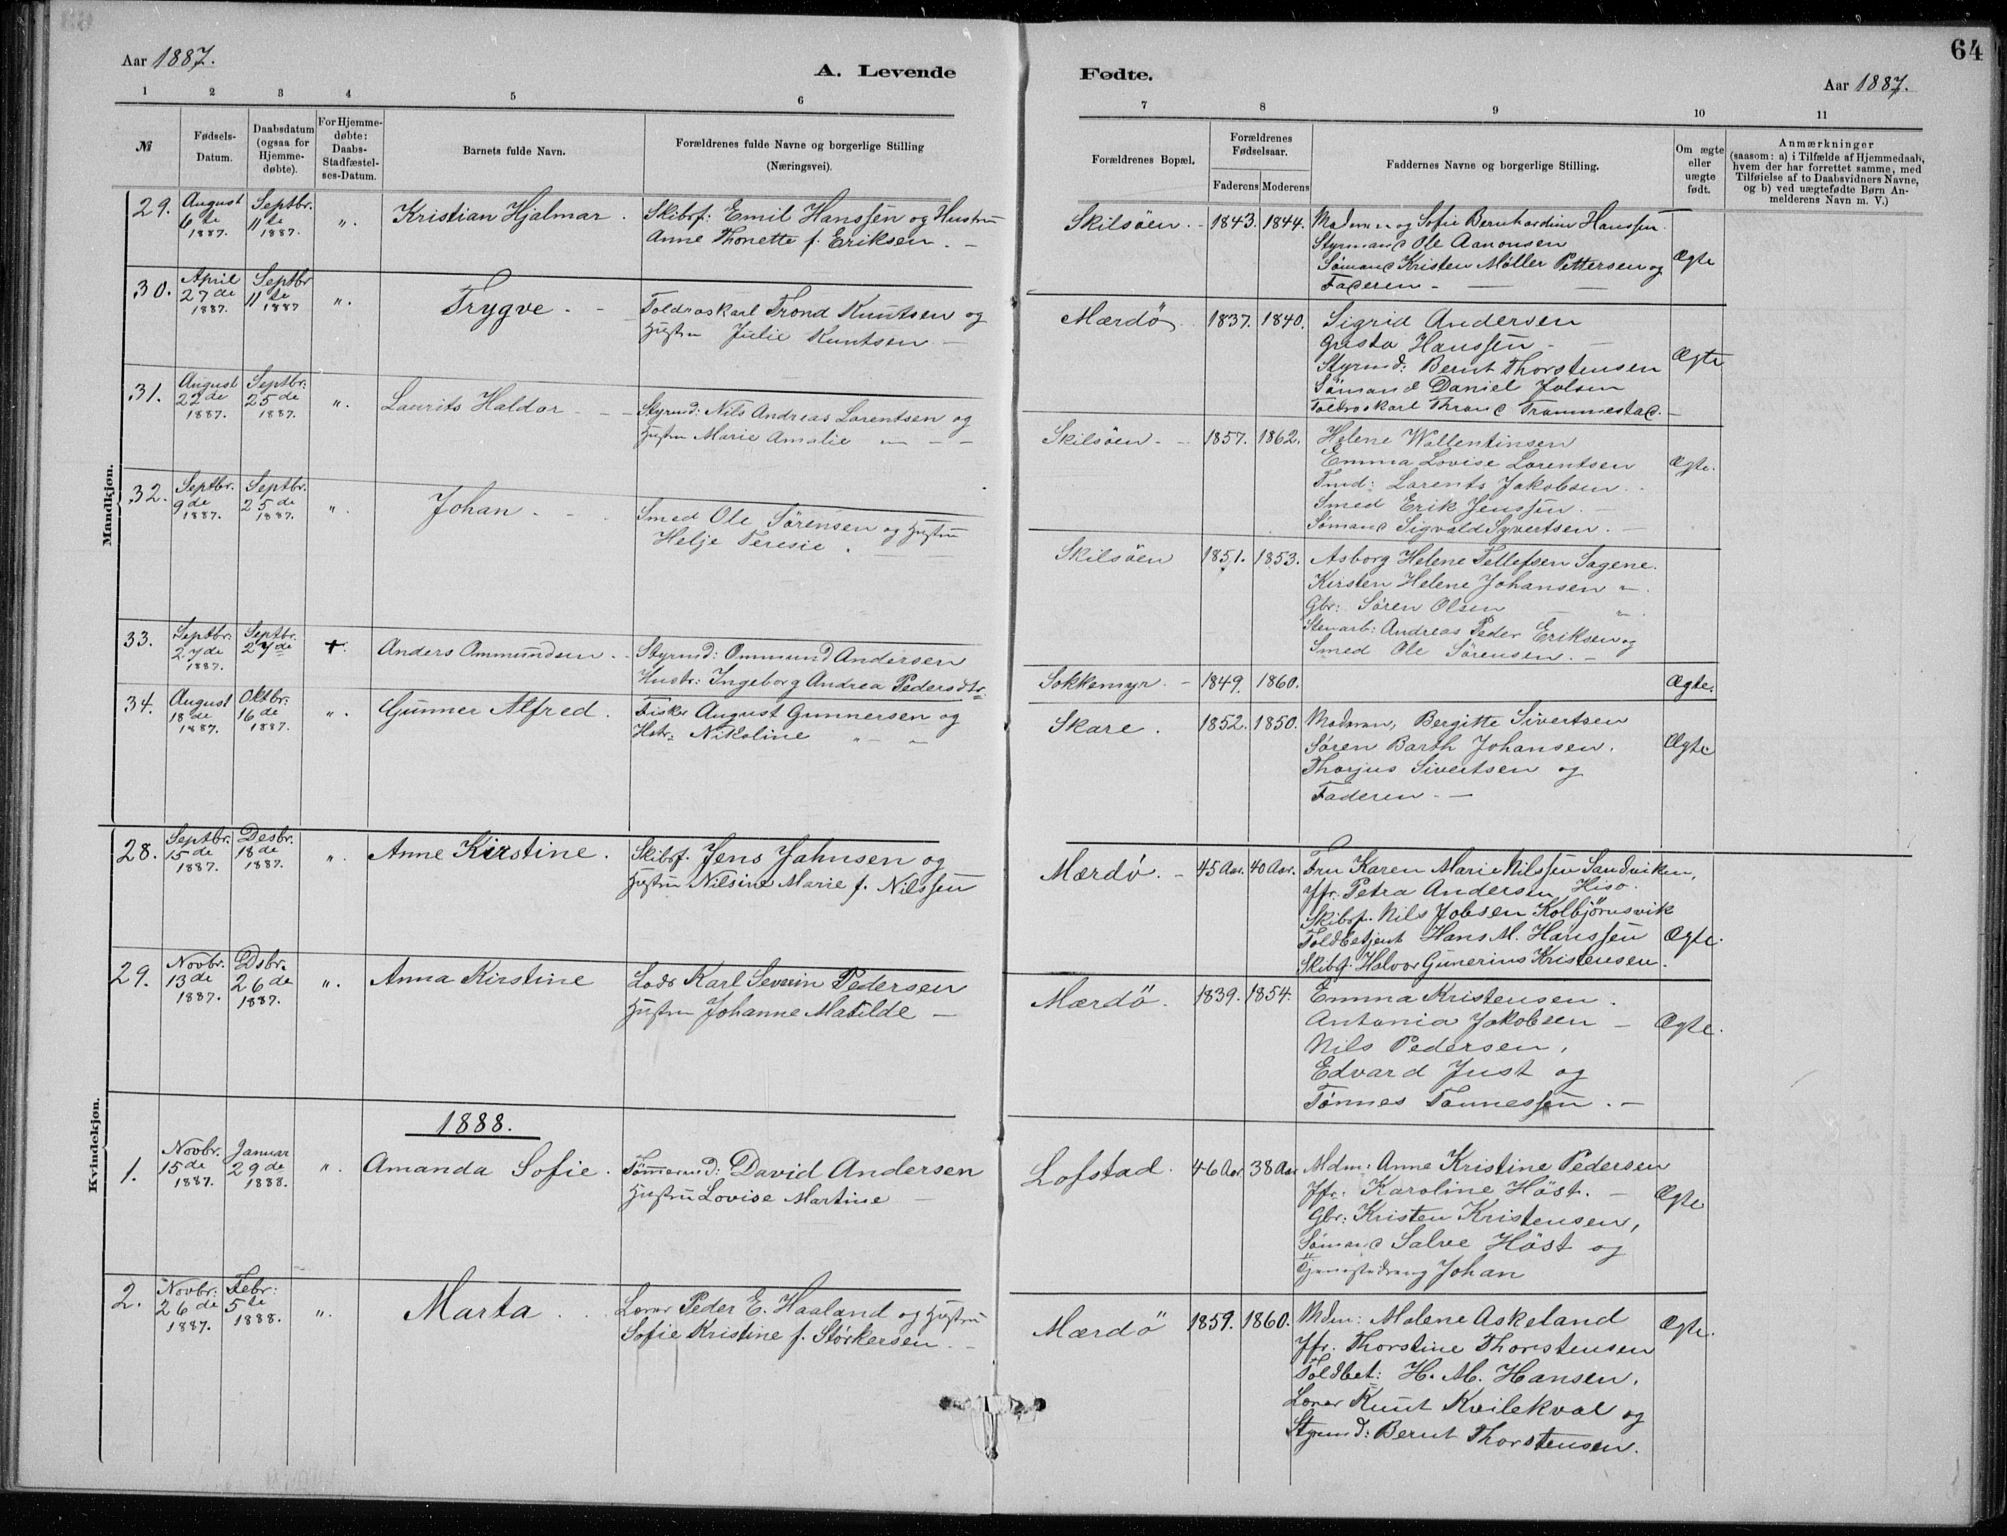 64
Aar 1887.
A. Levende
Fødte.
Aar 1887.
1 2 3 4 5 6
7 8 9 10 11
№
Fødsels-
Datum.
Daabsdatum
(ogsaa for
Hjemme-
døbte).
For Hjemme-
døbte:
Daabs-
Stadfæstel-
ses-Datum.
Barnets fulde Navn.
Forældrenes fulde Navne og borgerlige Stilling
(Næringsvei).
Forældrenes Bopæl.
Forældrenes
Fødselsaar.
Faderens
Moderens
Faddernes Navne og borgerlige Stilling.
Om ægte
eller
uægte
født.
Anmærkninger
(saasom: a) i Tilfælde af Hjemmedaab,
hvem der har forrettet samme, med
Tilføielse af to Daabsvidners Navne,
og b) ved uægtefødte Børn An-
melderens Navn m. V.)
Mandkjøn.
29.
August
6te
1887.
Septbr.
11te
1887.
".
Kristian Hjalmar.
Skibsf: Emil Hanssen og Hustru
Anne Thonette f. Eriksen. -
Skilsöen. -
1843.
1844.
Madmn og Sofie Bernhardine Hanssen.
Styrmand Ole Aanonsen
Sömand Kristen Möller Pettersen og
Faderen -
Ægte
30.
April
27de
1887.
Septbr
11te
1887
".
Trygve. -
Toldroskarl Trond Knutsen og
Hustru Julie Knutsen -
Mærdö.
1837.
1840.
Sigrid Andersen
Gusta Hanssen -
Styrmd: Bernt Thorstensen
Sömand Daniel Jolsen
Toldroskarl Thrond Trommestad. -
Ægte
31.
August
22de
1887.
Septbr:
25de
1887.
".
Laurits Haldor - -
Styrmd: Nils Andreas Lorentsen og
Hustru Marie Amalie - - -
Skilsöen. -
1857.
1862.
Helene Wallentinsen
Emma Lovise Lorentsen
Tmd: Lorents Jakobsen.
Smed Erik Jenssen. -
Sömand Sigvald Syvertsen.
Ægte.
32.
Septbr.
9de
1887.
Septbr.
25de
1887.
".
Johan. -
Smed Ole Sörensen og Hustru
Helje Teresie.
Skilsöen
1851.
1853.
Asborg Helene Tellefsen Sagene.
Kirsten Helene Johansen "
Gbr: Sören Olsen "
Stenarb: Andreas Peder Eriksen og
Smed Ole Sörensen. -
33.
Septbr:
27de
1887.
Septbr.
27de
+.
Anders Ommundsen. -
Styrmd: Ommund Andersen
Hustr: Ingeborg Andrea Pedersdtr.
Sokkemyr. -
1849.
1860.
Ægte.
34.
August
18de
1887.
Oktbr:
16de
1887.
".
Gunner Alfred.
Fisker August Gunnersen og
Hstr: Nikoline " "
Skare.
1852.
1850.
Madmn, Bergitte Sivertsen
Sören Barth Johansen.
Thorjus Sivertsen og
Faderen. -
Ægte
Kvindekjøn.
28.
Septbr.
15de
1887.
Desbr.
18de
1887.
".
Anne Kirstine.
Skibsf. Jens Jahnsen og
Hustru Nilsine Marie f. Nilssen
Mærdö. -
45 Aar.
40 Aar.
Fru Karen Marie Nilssen Sandviken,
Jfr. Petra Andersen Hisö.
Skibsf. Nils Jobsen Kolbjörnsvik
Toldbetjent Hans M. Hanssen
Skibsf: Halvor Gunerius Kristensen.
Ægte.
29.
Novbr.
13de
1887.
Dsbr.
26de
1887.
".
Anna Kirstine
Lods Karl Severin Pedersen
Hustru Johanne Matilde -
Mærdö.
1839.
1854.
Emma Kristensen.
Antonia Jakobsen -
Nils Pedersen,
Edvard Just og
Tönnes Tönnessen. -
Ægte.
1888.
1.
Novbr.
15de
1887.
Januar
29de
1888.
".
Amanda Sofie.
Tömmermd: David Andersen
Hustru Lovise Martine -
Lofstad.
46 Aar
38 Aar
Mdm: Anne Kristine Pedersen
Jfr: Karoline Höst. -
Gbr: Kristen Kristensen,
Sömand Salve Höst og
Tjenestedreng Johan
Ægte
2.
Novbr:
26de
1887.
Febr:
5te
1888.
".
Marta. .
Lærer Peder E. Haaland og Hustru
Sofie Kristine f. Störkersen. -
Mærdö
1859.
1860.
Mdm: Malene Askeland
Jfr. Thorstine Thorstensen
Toldbet: H. M. Hansen,
Lærer Knut Kvilekval og
Styrmd: Bernt Thorstensen.
Ægte.